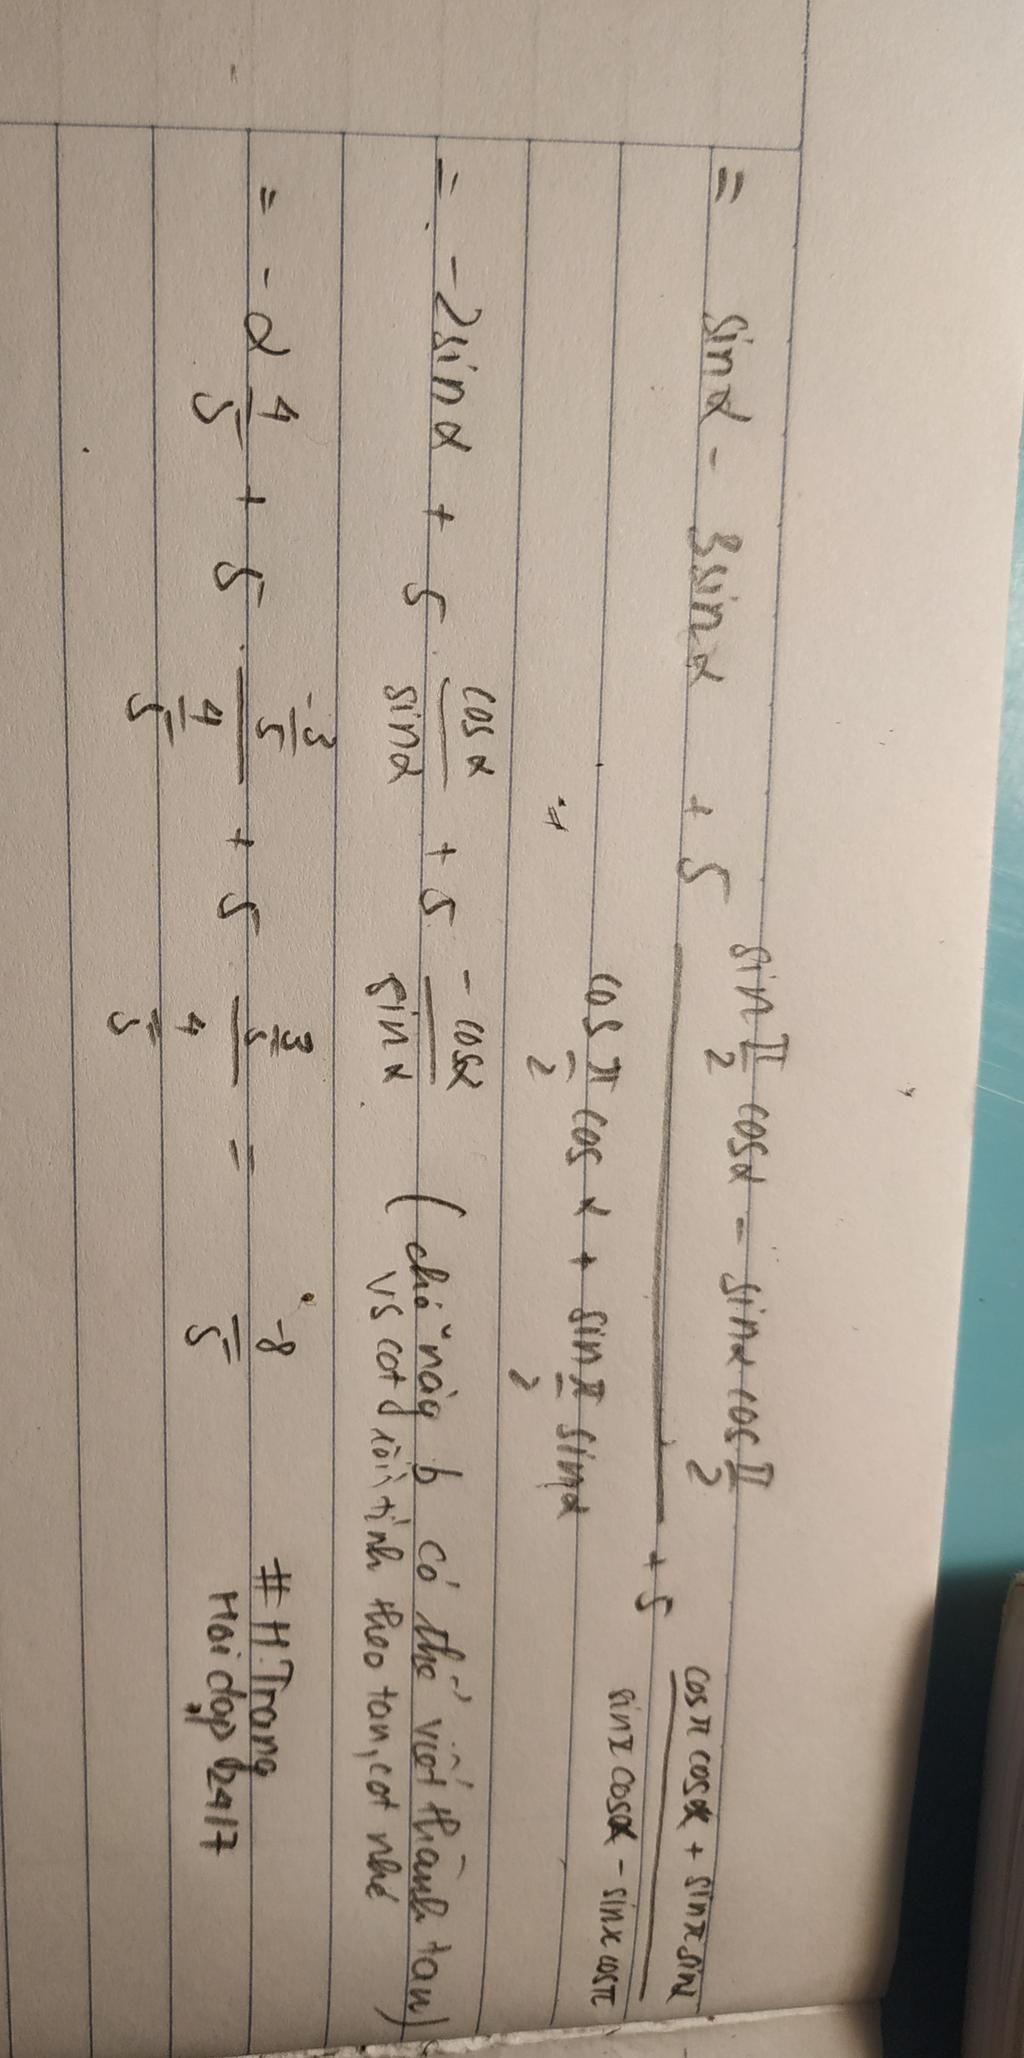 = sinα - 3sinα + 5 (sin π/2 cosα - sinα cos π/2)/(cos π/2 cos α + sin π/2 sinα) + 5 (cosπ cosα + sinπ sinα)/(sinπ cosα - sinα cosπ)
= -2sinα + 5 . cosα/sinα + 5 -cosα/sinα (chỗ này b có thể viết thành tan
vs cot rồi tính theo tan, cot nhé )
= - 2 4/5 + 5 . (-3/5)/(4/5) + 5 (3/5)/(4/5) = -8/5
# H.Trang
Hoidap 247